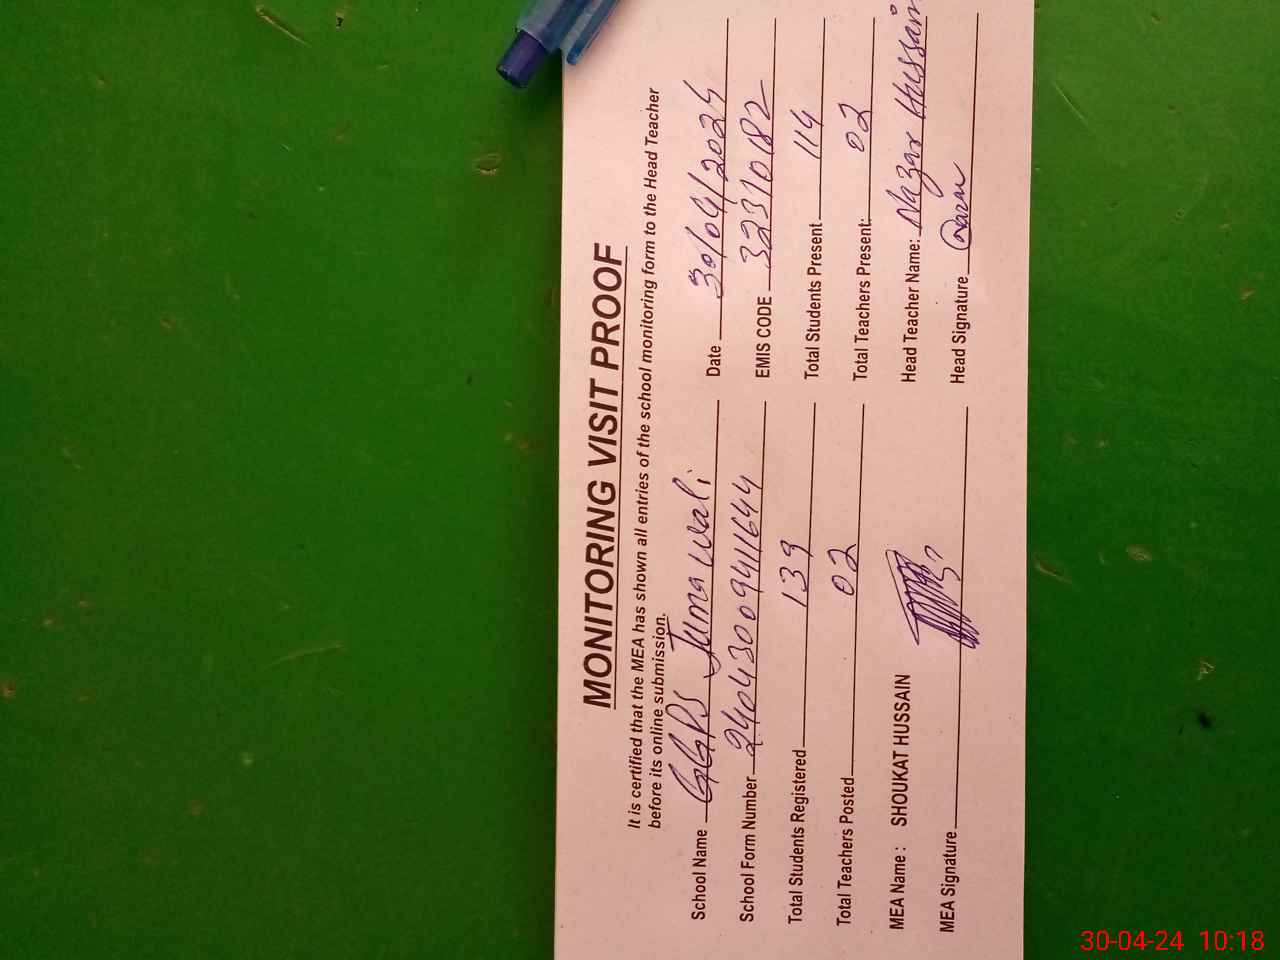 MONITORING VISIT PROOF
It is certified that the MEA has shown all entries of the school monitoring form to the Head Teacher
before its online submission.
School Name GGPS Juma wali Date 30/04/2024
School Form Number 24043009411644 EMIS CODE 32310182
Total Students Registered 139 Total Students Present 114
Total Teachers Posted 02 Total Teachers Present: 02
MEA Name : SHOUKAT HUSSAIN Head Teacher Name: Nazar Hussain
MEA Signature Head Signature
30-04-24 10:18